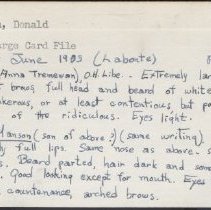 , Donald
arge Card File
June 1903 (Laborte)
(Anna Tremevan), O.H. Libe. - Extremely lar
brows, full head and beard of white
kerous, or at least contentious, but po
of the ridiculous. Eyes light.
Hanson (son of above?) (same writing)
ly full lips. Same nose as above.
s. Beard parted, hair dark and some
. Good looking except for mouth. Eyes
countenance, arched brows.